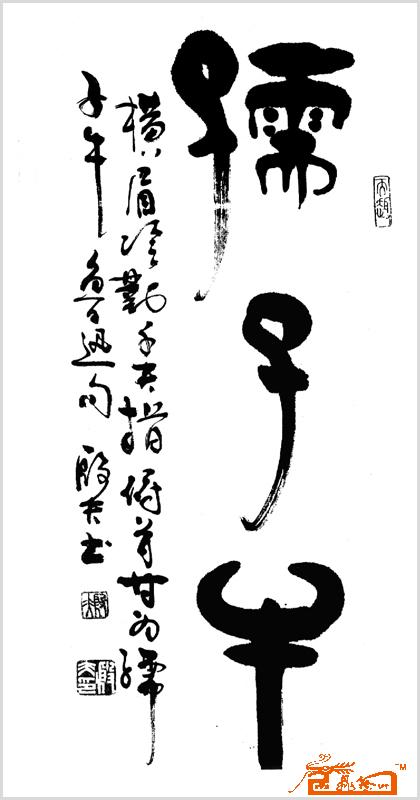 孺子牛
横眉冷對千夫指俯首甘为孺
子牛 魯迅句 殷夫书